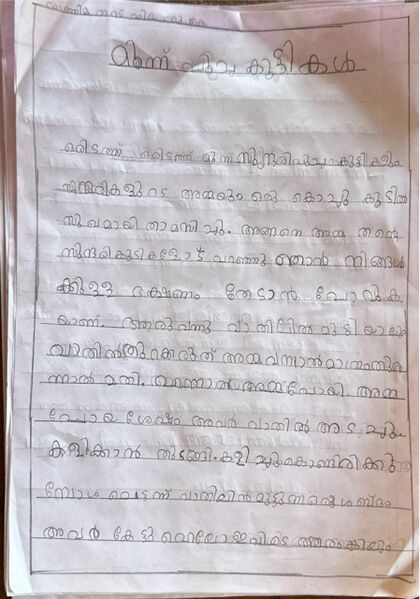 മൂന്ന് പൂച്ച കുട്ടികൾ
ഒരിടത്ത് ഒരിടത്ത് മൂന്ന് സുന്ദരിപൂച്ചകുട്ടികളും
സുന്ദരികളുടെ അമ്മയും ഒരു കൊച്ചു കൂടിൽ
സുഖമായി താമസിച്ചു. അങ്ങനെ അമ്മ തൻെറ
സുന്ദരികുടികളോട് പറഞ്ഞു ഞാൻ നിങ്ങൾ
ക്കുള്ള ഭക്ഷണം തേടാൻ പോവുക
യാണ്. ആരുവന്നു വാതിലിൽ മുട്ടിയാലും
വാതിൽതുറക്കരുത് അമ്മവന്നാൽമാത്രംതുറ
ന്നാൽ മതി. എന്നാൽ അമ്മപോയി. അമ്മ
പോയ ശേഷം അവർ വാതിൽ അടച്ചു.
കളിക്കാൻ തുടങ്ങി. കളിച്ചുകൊണ്ടിരിക്കു
മ്പോൾ പെട്ടന്ന് വാതിലിൽമുട്ടുന്നഒരുശബ്ദം
അവർ കേട്ടു ഹെലോ ഇവിടെ ആരുംകിലും